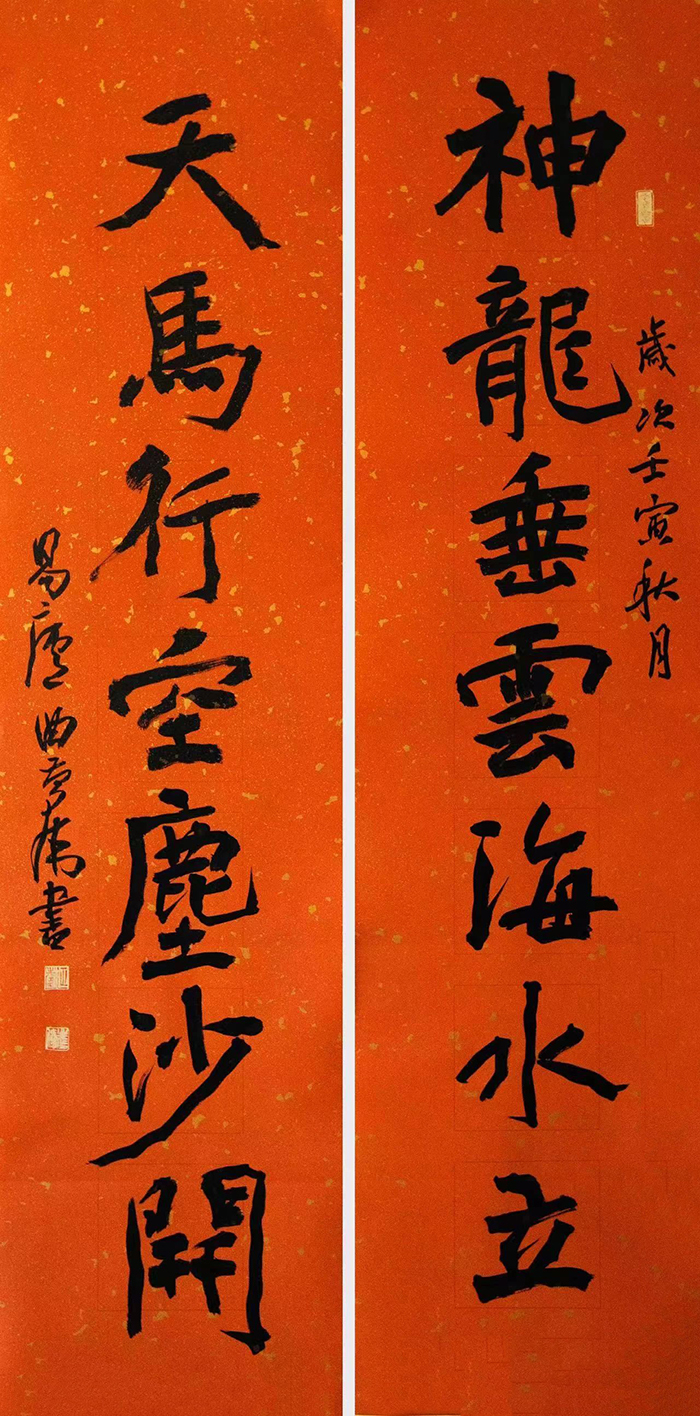 歲次壬寅秋月
神龍垂雲海水立
天馬行空塵沙開
易廬曲黃庸書